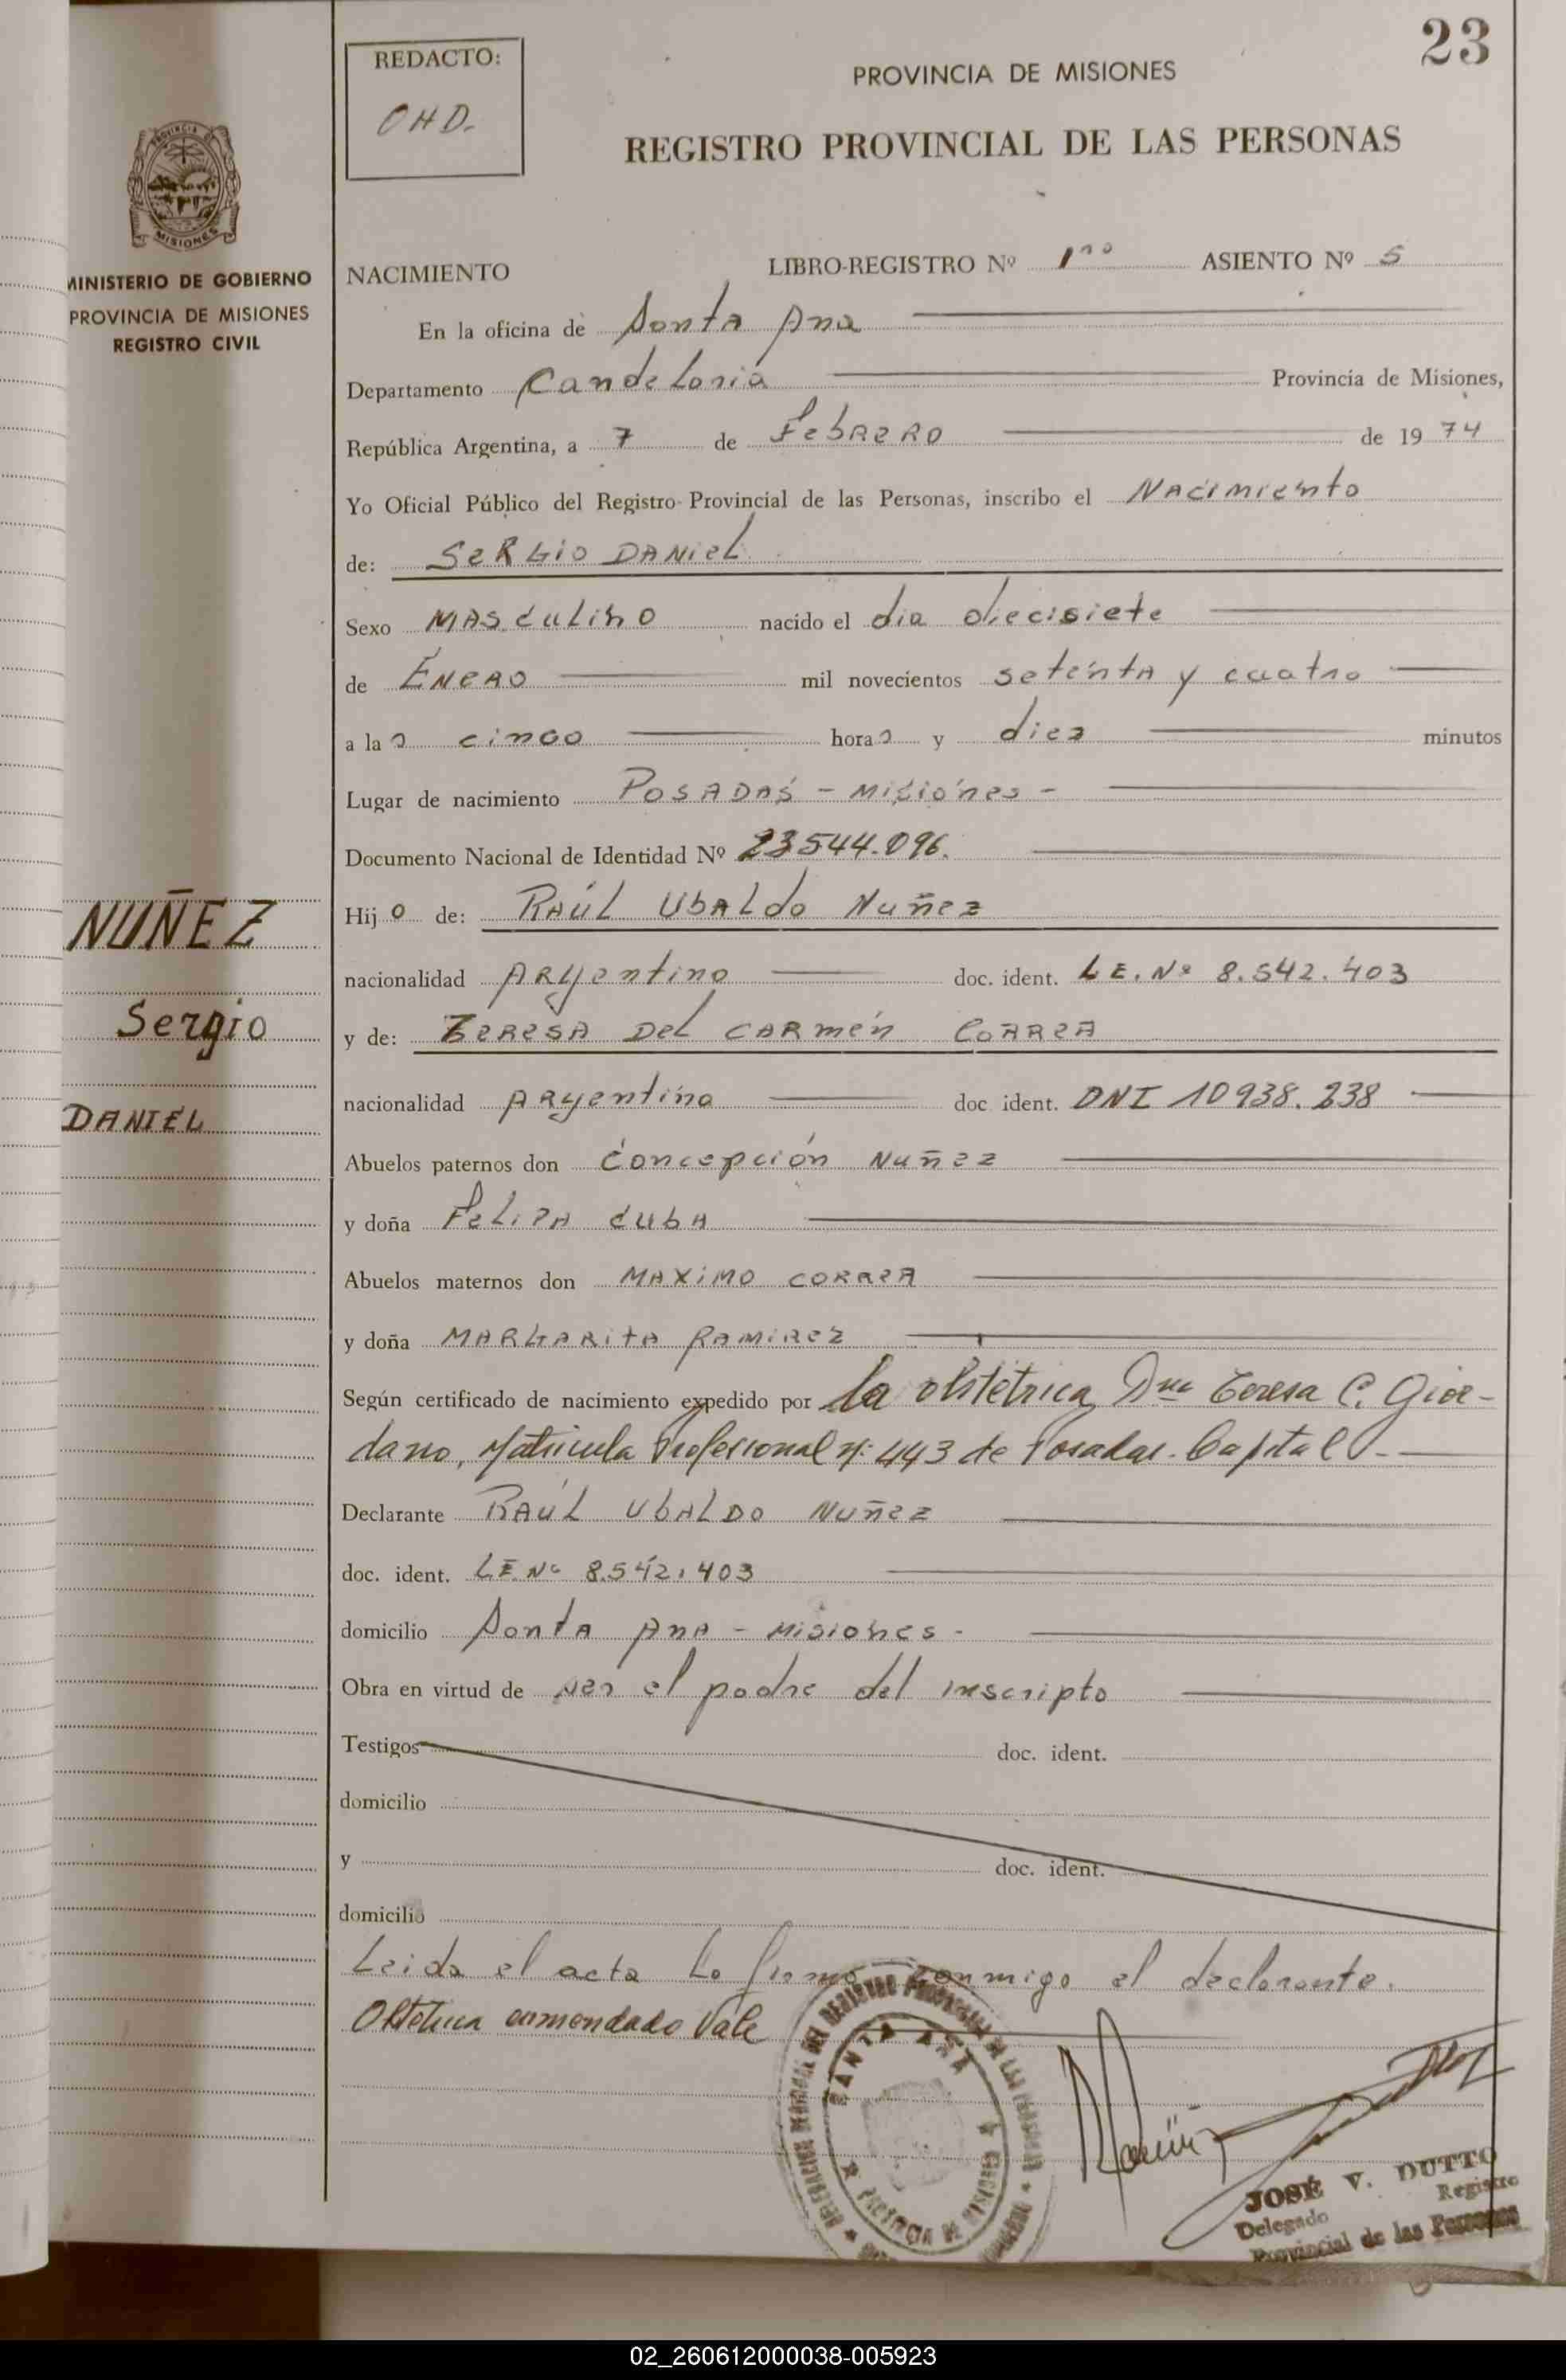 23
REDACTO:
OHD.
PROVINCIA DE MISIONES
REGISTRO PROVINCIAL DE LAS PERSONAS
MISIONES
MINISTERIO DE GOBIERNO
PROVINCIA DE MISIONES
REGISTRO CIVIL
NACIMIENTO LIBRO-REGISTRO Nº 1ro ASIENTO Nº 5
En la oficina de Santa Ana
Departamento Candelaria Provincia de Misiones,
República Argentina, a 7 de Febrero de 1974
Yo Oficial Público del Registro Provincial de las Personas, inscribo el Nacimiento
de: Sergio Daniel
Sexo Masculino nacido el dia diecisiete
de Enero mil novecientos setenta y cuatro
a las cinco horas y diez minutos
Lugar de nacimiento Posadas - Misiones -
Documento Nacional de Identidad Nº 23544.096.
Hijo de: Raúl Ubaldo Nuñez
NUÑEZ
nacionalidad Argentino doc. ident. L.E. Nº 8.542.403
Sergio
y de: Teresa Del Carmen Correa
nacionalidad Argentina doc ident. DNI 10938.238
DANIEL
Abuelos paternos don Concepción Nuñez
y doña Felipa Cuba
Abuelos maternos don Maximo Correa
y doña Margarita Ramirez
Según certificado de nacimiento expedido por la obstétrica Dña Teresa C. Gior-
dano, Matricula Profesional nº: 443 de Posadas - Capital -
Declarante Raúl Ubaldo Nuñez
doc. ident. L.E. Nº 8.542.403
domicilio Santa Ana - Misiones -
Obra en virtud de ser el padre del inscripto
Testigos doc. ident.
domicilio
y doc. ident.
domicilio
Leida el acta la firma conmigo el declarante.
Obstétrica enmendado Vale
SANTA ANA
JOSÉ V. DUTTO
Delegado Registro
Provincial de las Personas
02_260612000038-005923